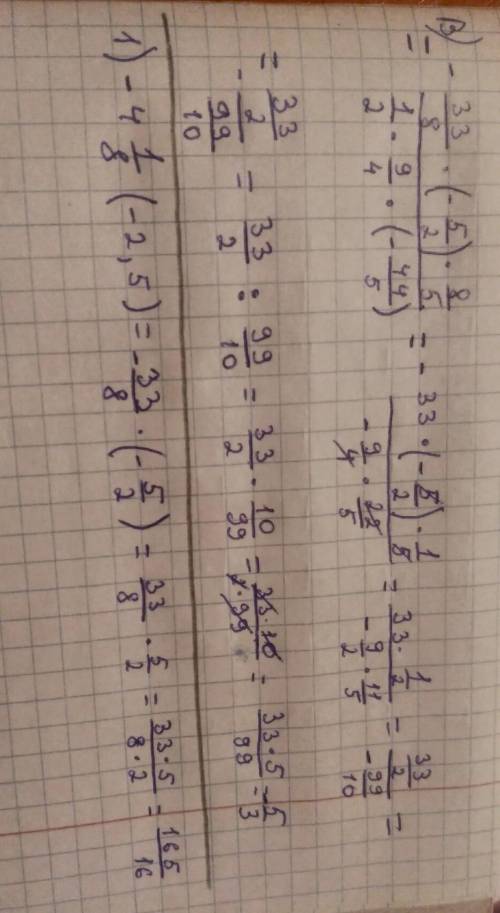 B)
= - 33/8 · (-5/2) · 8/5 / 1/2 · 9/4 · (-44/5) = - 33 · (-5/2) · 1/5 / -9/4 · 22/5 = 33 · 1/2 / -9/2 · 11/5 = 33/2 / -99/10 =
= 33/2 / -99/10 = 33/2 : 99/10 = 33/2 · 10/99 = 33·10/2·99 = 33·5/99 = 5/3
1) -4 1/8 (-2,5) = -33/8 · (-5/2) = 33/8 · 5/2 = 33·5/8·2 = 165/16